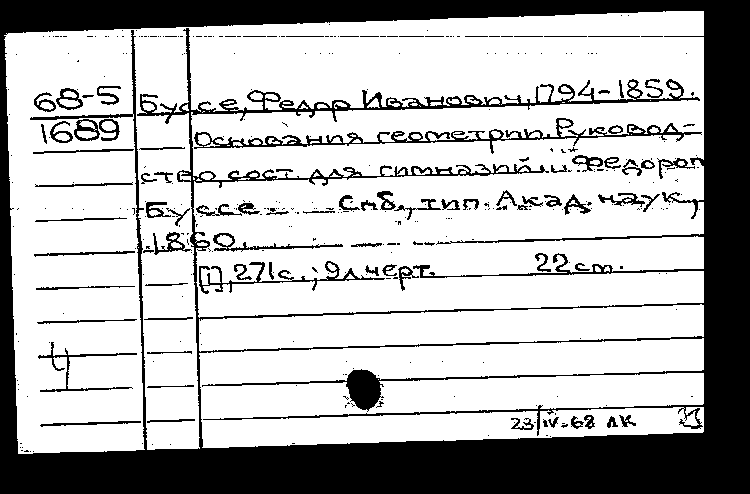 68-5
1689
Буссе, Федор Иванович, 1794-1859.
Основания геометрии. Руковод=
ство, сост. для гимназий... Федором
Буссе. Спб., тип. Акад. наук,
1860.
[1], 271 с.; 9 л. черт. 22 cm.
4
23/IV-68 ЛК